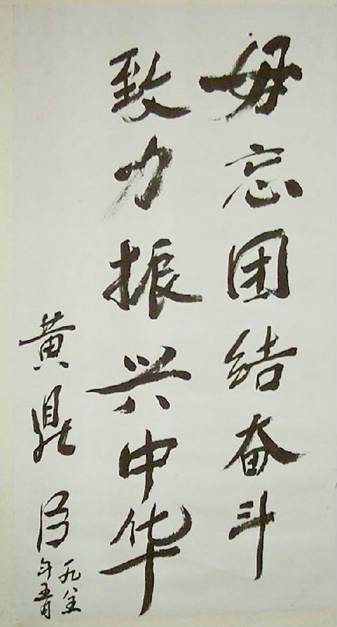 毋忘团结奋斗
致力振兴中华
黄鼎臣
一九八五
年五月